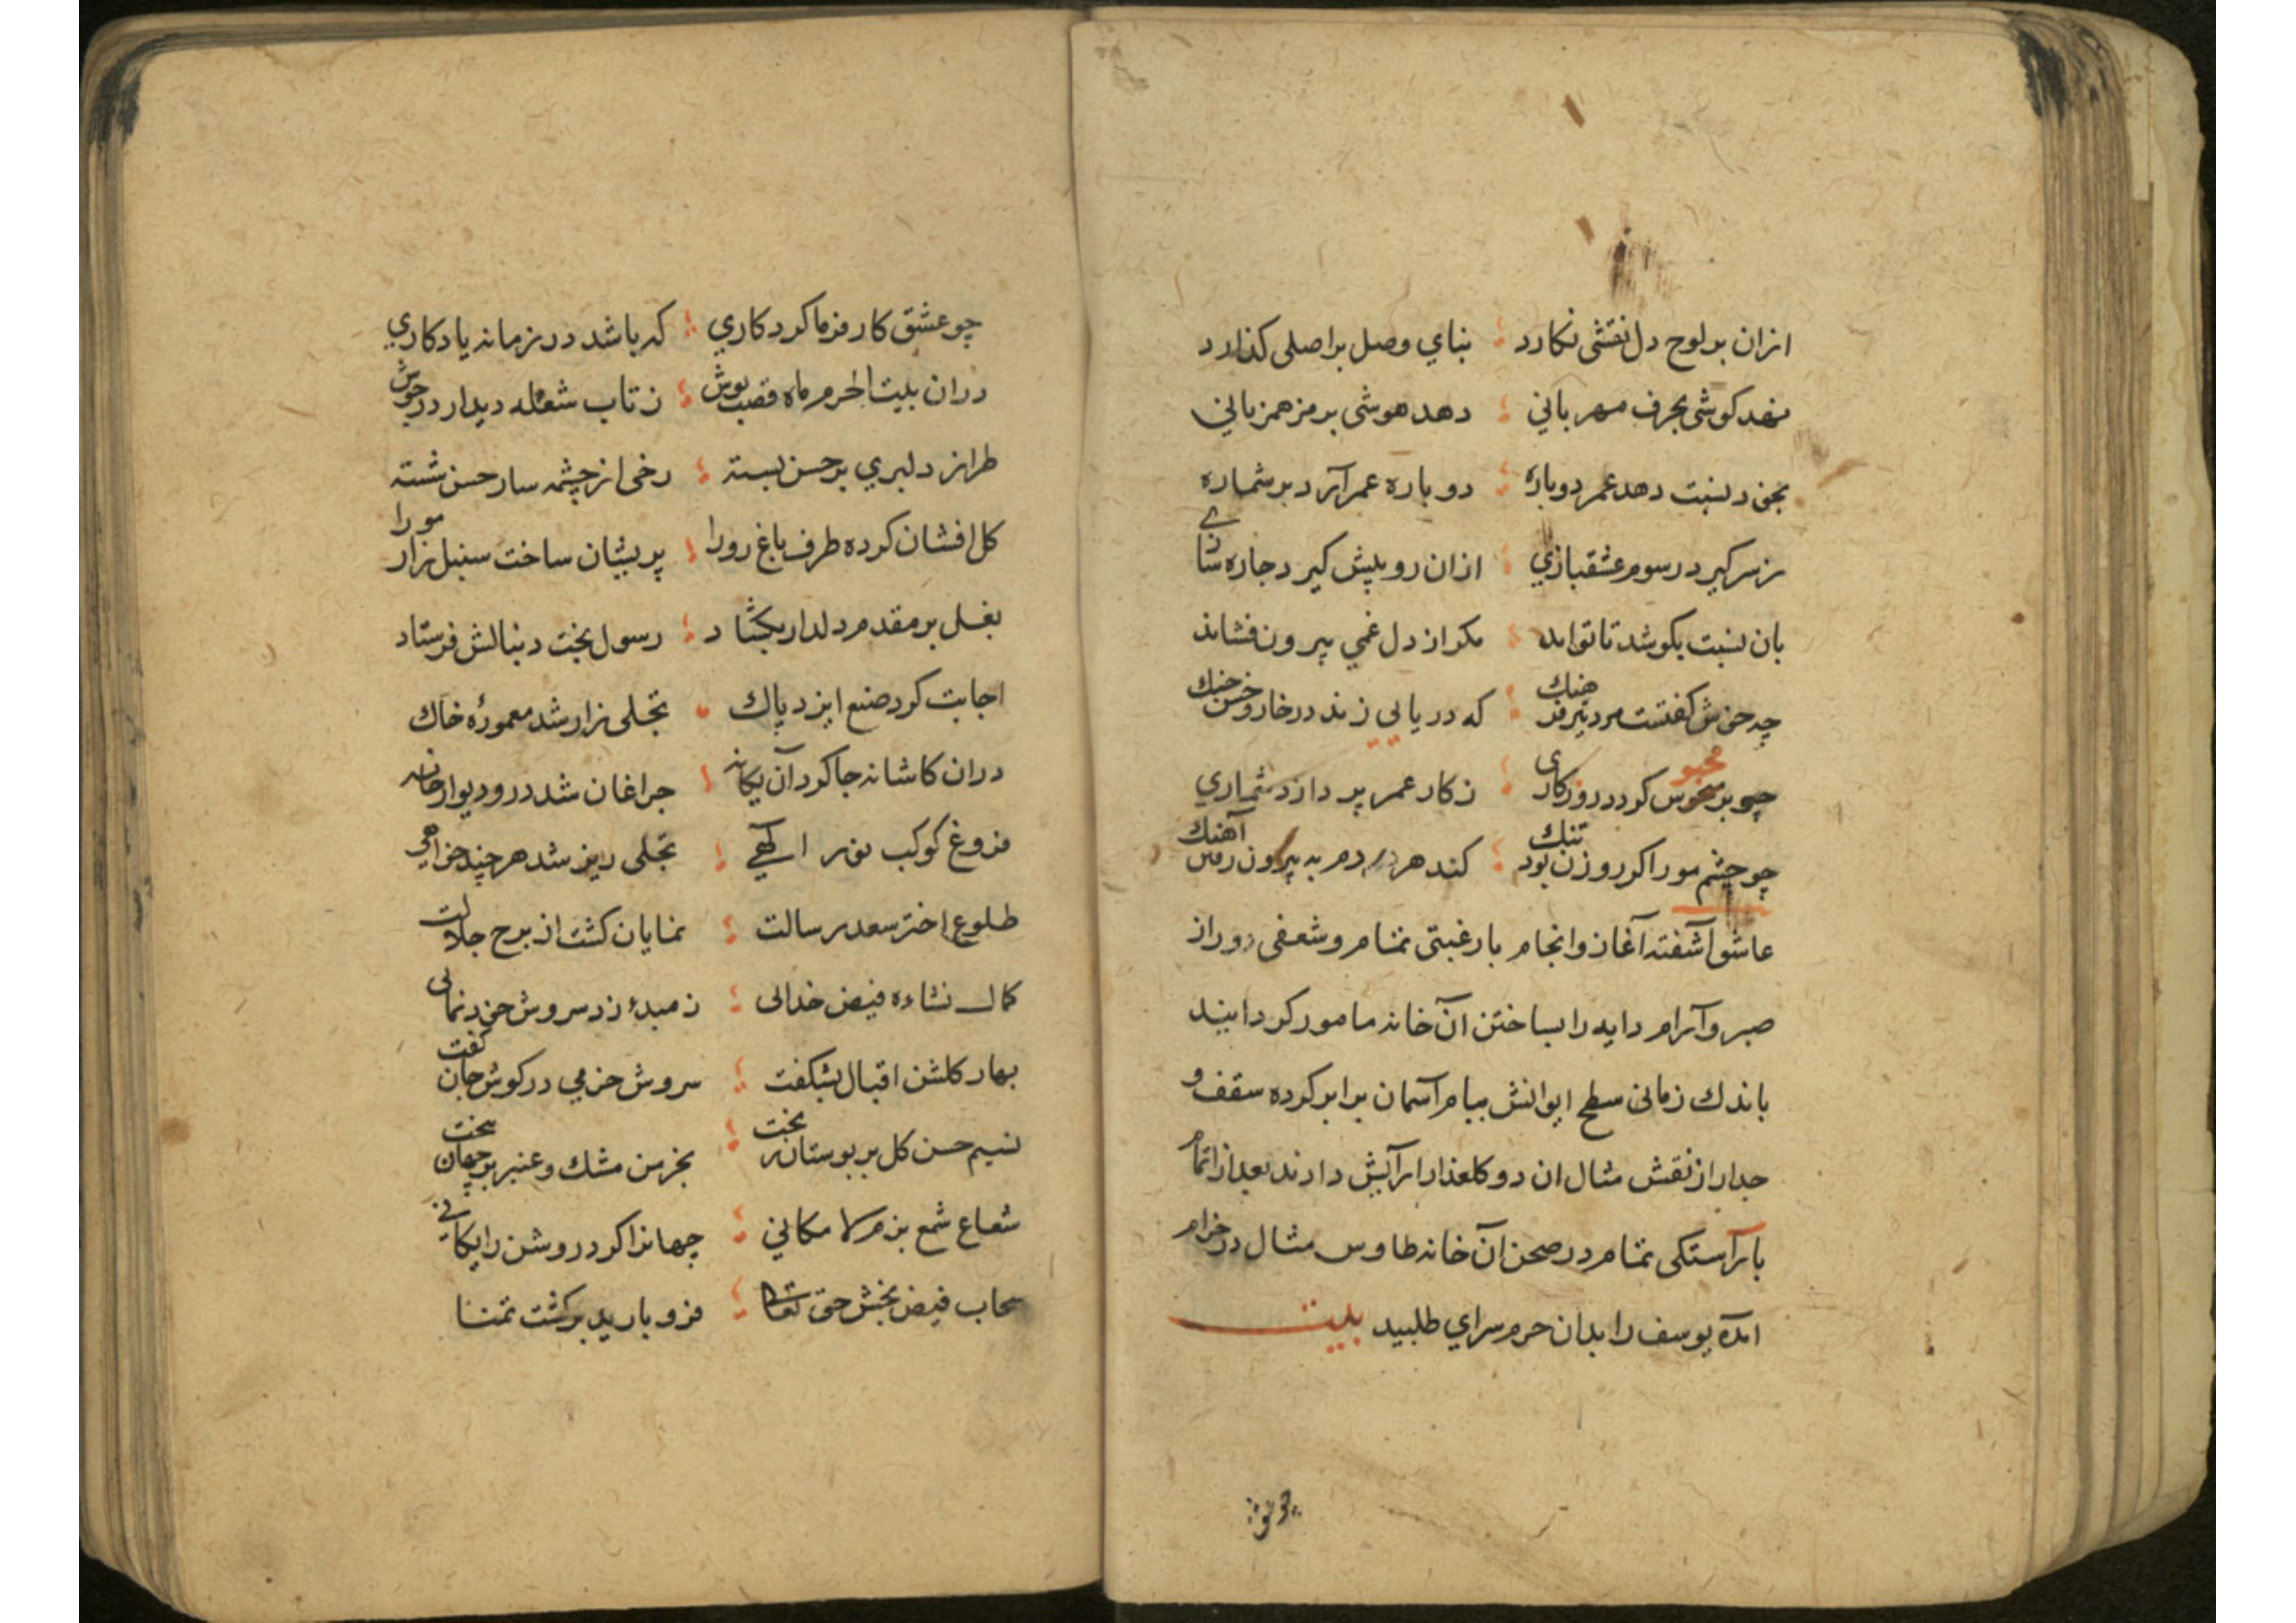 ازان بر لوح دل نقشی نکارد بنای وصل بر اصلی کذارد
نهد کوشی بحرف مهربانی دهد هوشی برمز همزبانی
بخود نسبت دهد عمر دوباره دوباره عمر آرد بر شماره
ز سر کیرد رسوم عشقبازي ازان رو پیش کیرد جاره سازے
بان نسبت بکوشد تا تواند مکر از دل غمي بیرون فشاند
چه خوش کفتست مرد تیز فرهنك که دریایی زند در خار و خس جنك
چو بر محبوس کردد روزکاری ز کار عمر بردارد شماري
چو چشم مور اکر روزن بود تنك کند هر دم به بیرون رفتن آهنك
عاشق آشفته آغاز و انجام با رغبتی تمام و شعفی دور از
صبر و آرام دایه را بساختن آن خانه مامور کردانید
باندك زمانی سطح ایوانش ببام آسمان برابر کرده سقف و
جدار از نقش مثال ان دو کلعذار آرایش دادند بعد از اتمام
با آراستکی تمام در صحن آن خانه طاوس مثال در خرام
امده یوسف را بدان حرم سرای طلبید بیت
چو عشق
چو عشق کار فرما کرد کاري که باشد در زمانه یادکاري
دران بیت الحرم ماه قصب پوش ز تاب شعله دیدار در جوش
طراز دلبري بر حسن بسته رخی از چشمه سار حسن شسته
کل افشان کرده طرف باغ رو را پریشان ساخت سنبل زار مو را
بغل بر مقدم دلدار بکشاد رسول بخت دنبالش فرستاد
اجابت کرد صنع ایزد پاك تجلی زار شد معمورهٔ خاك
دران کاشانه جا کرد آن یکانه جراغان شد در و دیوار خانه
فروغ کوکب نور الهی تجلی ریز شد هر چند خواهی
طلوع اختر سعد رسالت نمایان کشت از برج جلالت
کمال نشاءه فیض خدائی ز مبدء زد سروش خود نمائی
بهار کلشن اقبال بشکفت سروش خرمي در کوش جان کفت
نسیم حسن کل بر بوستان ریخت بخرمن مشك و عنبر بر جهان بیخت
شعاع شمع بزم لا مکاني جهانرا کرد روشن رایکاني
سحاب فیض بخش حق تعالی فرو بارید بر کشت تمنا